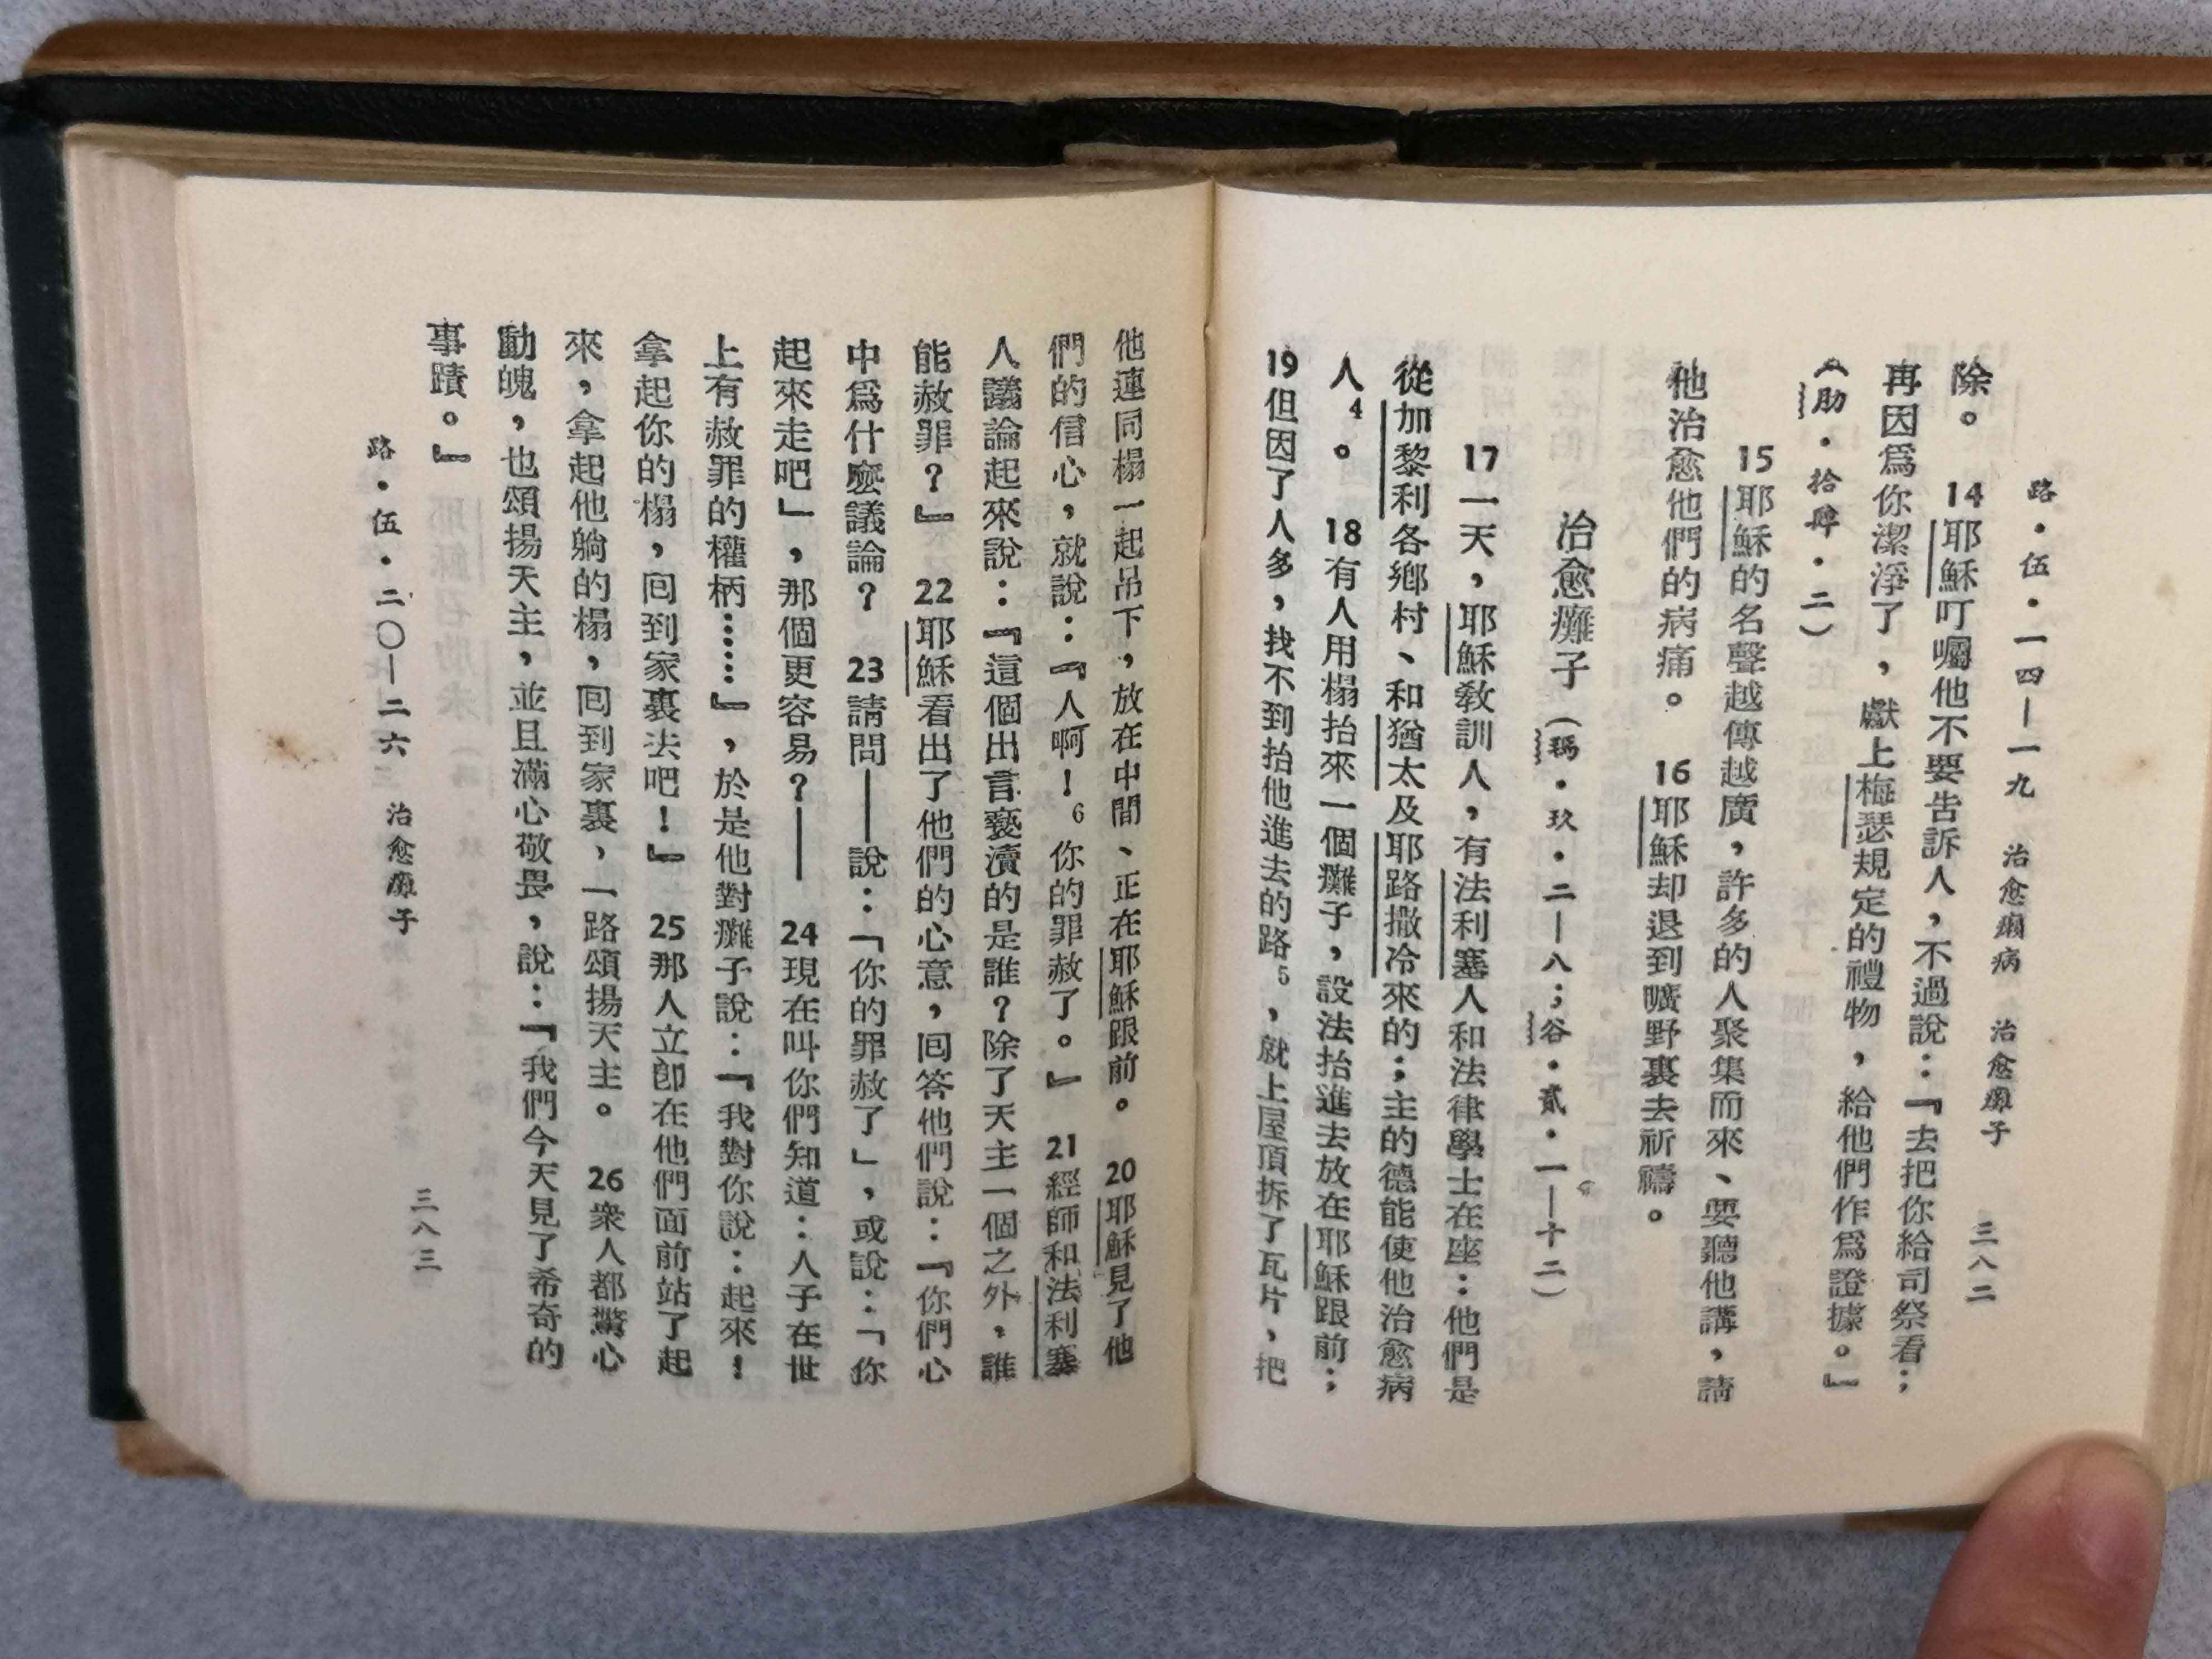 路・伍・一四—一九　治愈癩病　治愈癱子　三八二
除。　14耶穌叮囑他不要告訴人，不過說：『去把你給司祭看；
再因爲你潔淨了，獻上梅瑟規定的禮物，給他們作爲證據。』
（肋・拾肆・二）
15耶穌的名聲越傳越廣，許多的人聚集而來、要聽他講，請
他治愈他們的病痛。　16耶穌却退到曠野裏去祈禱。
治愈癱子（瑪・玖・二—八；谷・貳・一—十二）
17一天，耶穌教訓人，有法利塞人和法律學士在座：他們是
從加黎利各鄉村、和猶太及耶路撒冷來的；主的德能使他治愈病
人4。　18有人用榻抬來一個癱子，設法抬進去放在耶穌跟前；
19但因了人多，找不到抬他進去的路5，就上屋頂拆了瓦片，把
他連同榻一起吊下，放在中間、正在耶穌跟前。　20耶穌見了他
們的信心，就說：『人啊！6你的罪赦了。』　21經師和法利塞
人議論起來說：『這個出言褻瀆的是誰？除了天主一個之外，誰
能赦罪？』　22耶穌看出了他們的心意，囘答他們說：『你們心
中爲什麽議論？　23請問——說：「你的罪赦了」，或說：「你
起來走吧」，那個更容易？——　24現在叫你們知道：人子在世
上有赦罪的權柄……』，於是他對癱子說：『我對你說：起來！
拿起你的榻，囘到家裏去吧！』　25那人立卽在他們面前站了起
來，拿起他躺的榻，囘到家裏，一路頌揚天主。　26衆人都驚心
動魄，也頌揚天主，並且滿心敬畏，說：『我們今天見了希奇的
事蹟。』
路・伍・二〇—二六　治愈癱子　三八三